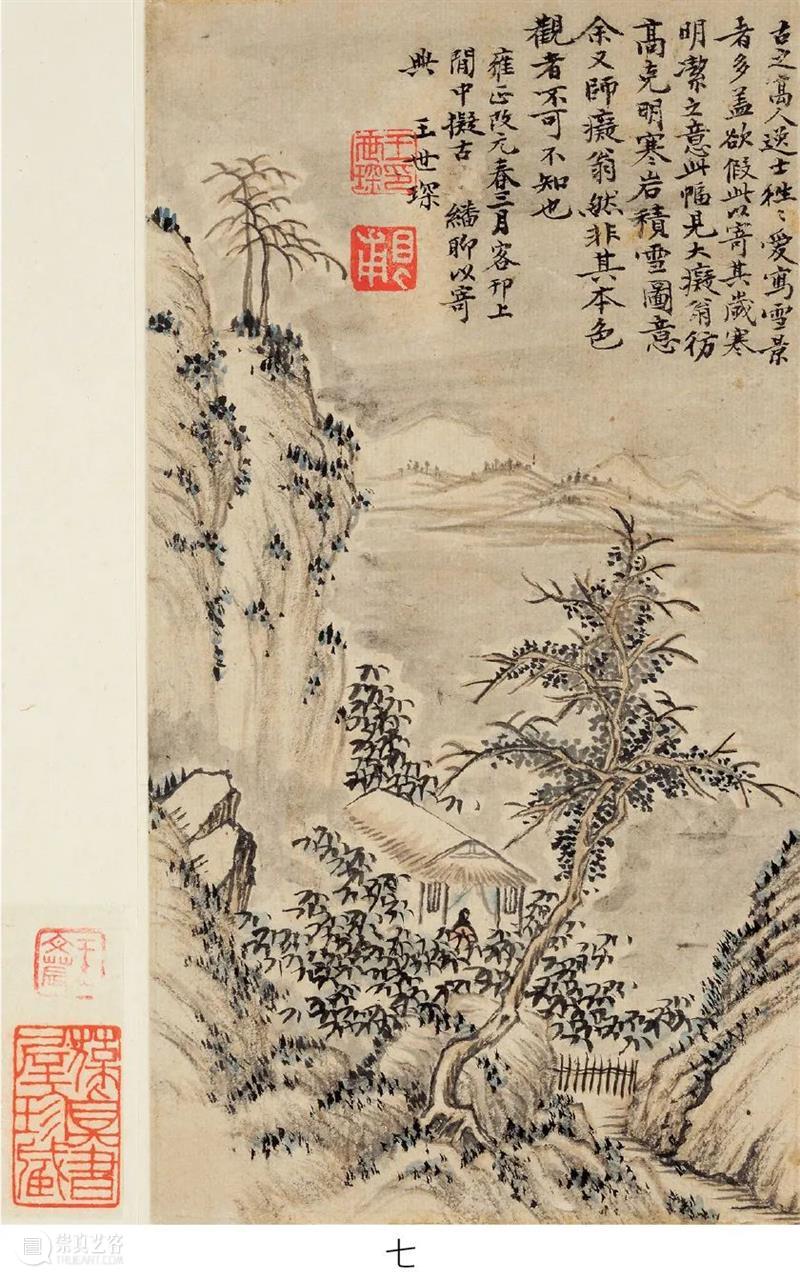 古之高人逸士往〻愛寫雪景
者多蓋欲假此以寄其歲寒
明潔之意此幅見大癡翁彷
高克明寒岩積雪圖意
余又師癡翁然非其本色
觀者不可不知也
雍正改元春三月客邗上
閒中擬古 繙聊以寄
興 王世琛
王印世琛
葆真書屋珍藏
七
崇真艺客
TRUEART.COM